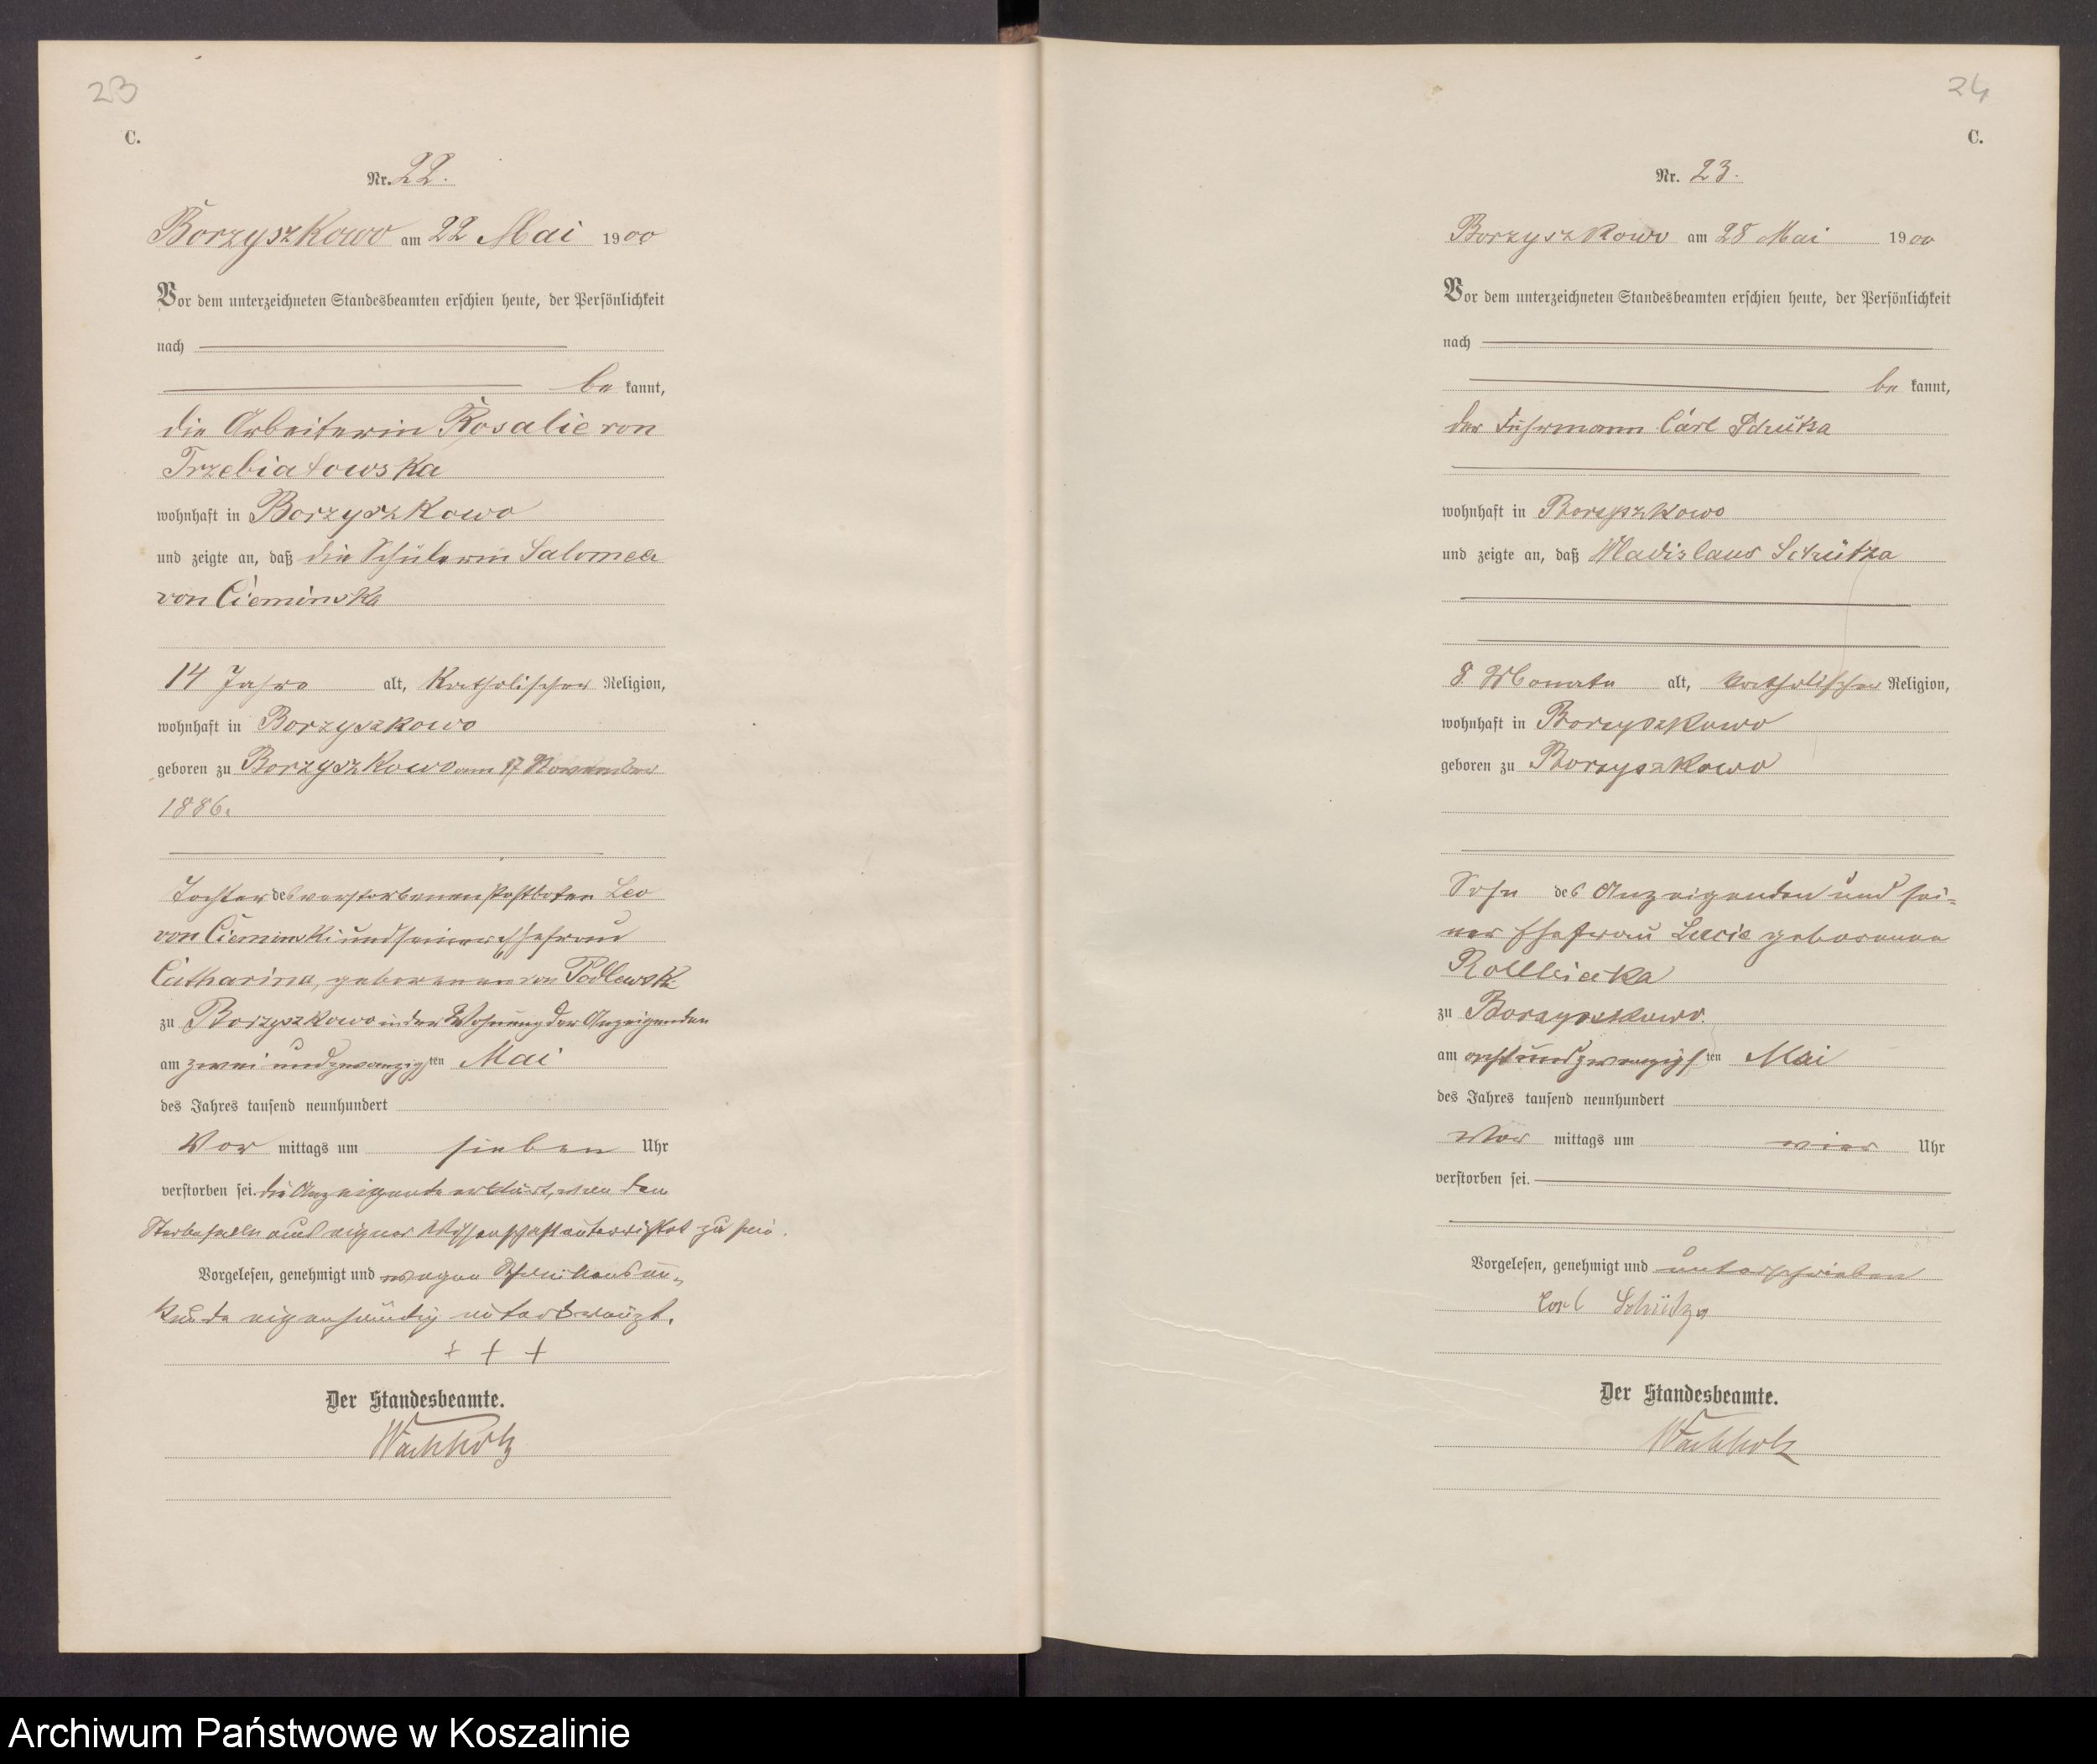 23
C.
Nr. 22.
Borzyszkowo am 22 Mai 1900
Vor dem unterzeichneten Standesbeamten erschien heute, der Persönlichkeit
nach
be kannt,
die Arbeiterin Rosalie von
Trzebiatowska
wohnhaft in Borzyszkowo
und zeigte an, daß die Schülerin Salomea
von Cieminska
14 Jahre alt, katholischer Religion,
wohnhaft in Borzyszkowo
geboren zu Borzyszkowo am 17 November
1886.
Tochter des verstorbenen Postboten Leo
von Cieminski und seiner Ehefrau
Catharina, geborenen von Podlewski
zu Borzyszkowo in der Wohnung der Anzeigenden
am zwei und zwanzigsten Mai
des Jahres tausend neunhundert
Vor mittags um sieben Uhr
verstorben sei. Die Anzeigende erklärt, von dem
Sterbefalle aus eigner Wissenschaft unterrichtet zu sein.
Vorgelesen, genehmigt und wegen Schreibens un-
kunde eigenhändig unterkreuzt.
+ + +
Der Standesbeamte.
Wachholz
24
C.
Nr. 23.
Borzyszkowo am 28 Mai 1900
Vor dem unterzeichneten Standesbeamten erschien heute, der Persönlichkeit
nach
be kannt,
der Fuhrmann Carl Schütza
wohnhaft in Borzyszkowo
und zeigte an, daß Wladislaus Schütza
8 Monate alt, katholischer Religion,
wohnhaft in Borzyszkowo
geboren zu Borzyszkowo
Sohn des Anzeigenden und sei-
ner Ehefrau Lucie geborenen
zu Borzyszkowo.
am achtundzwanzigsten Mai
des Jahres tausend neunhundert
Vor mittags um vier Uhr
verstorben sei.
Vorgelesen, genehmigt und unterschrieben
Carl Schütza
Der Standesbeamte.
Wachholz
Archiwum Państwowe w Koszalinie